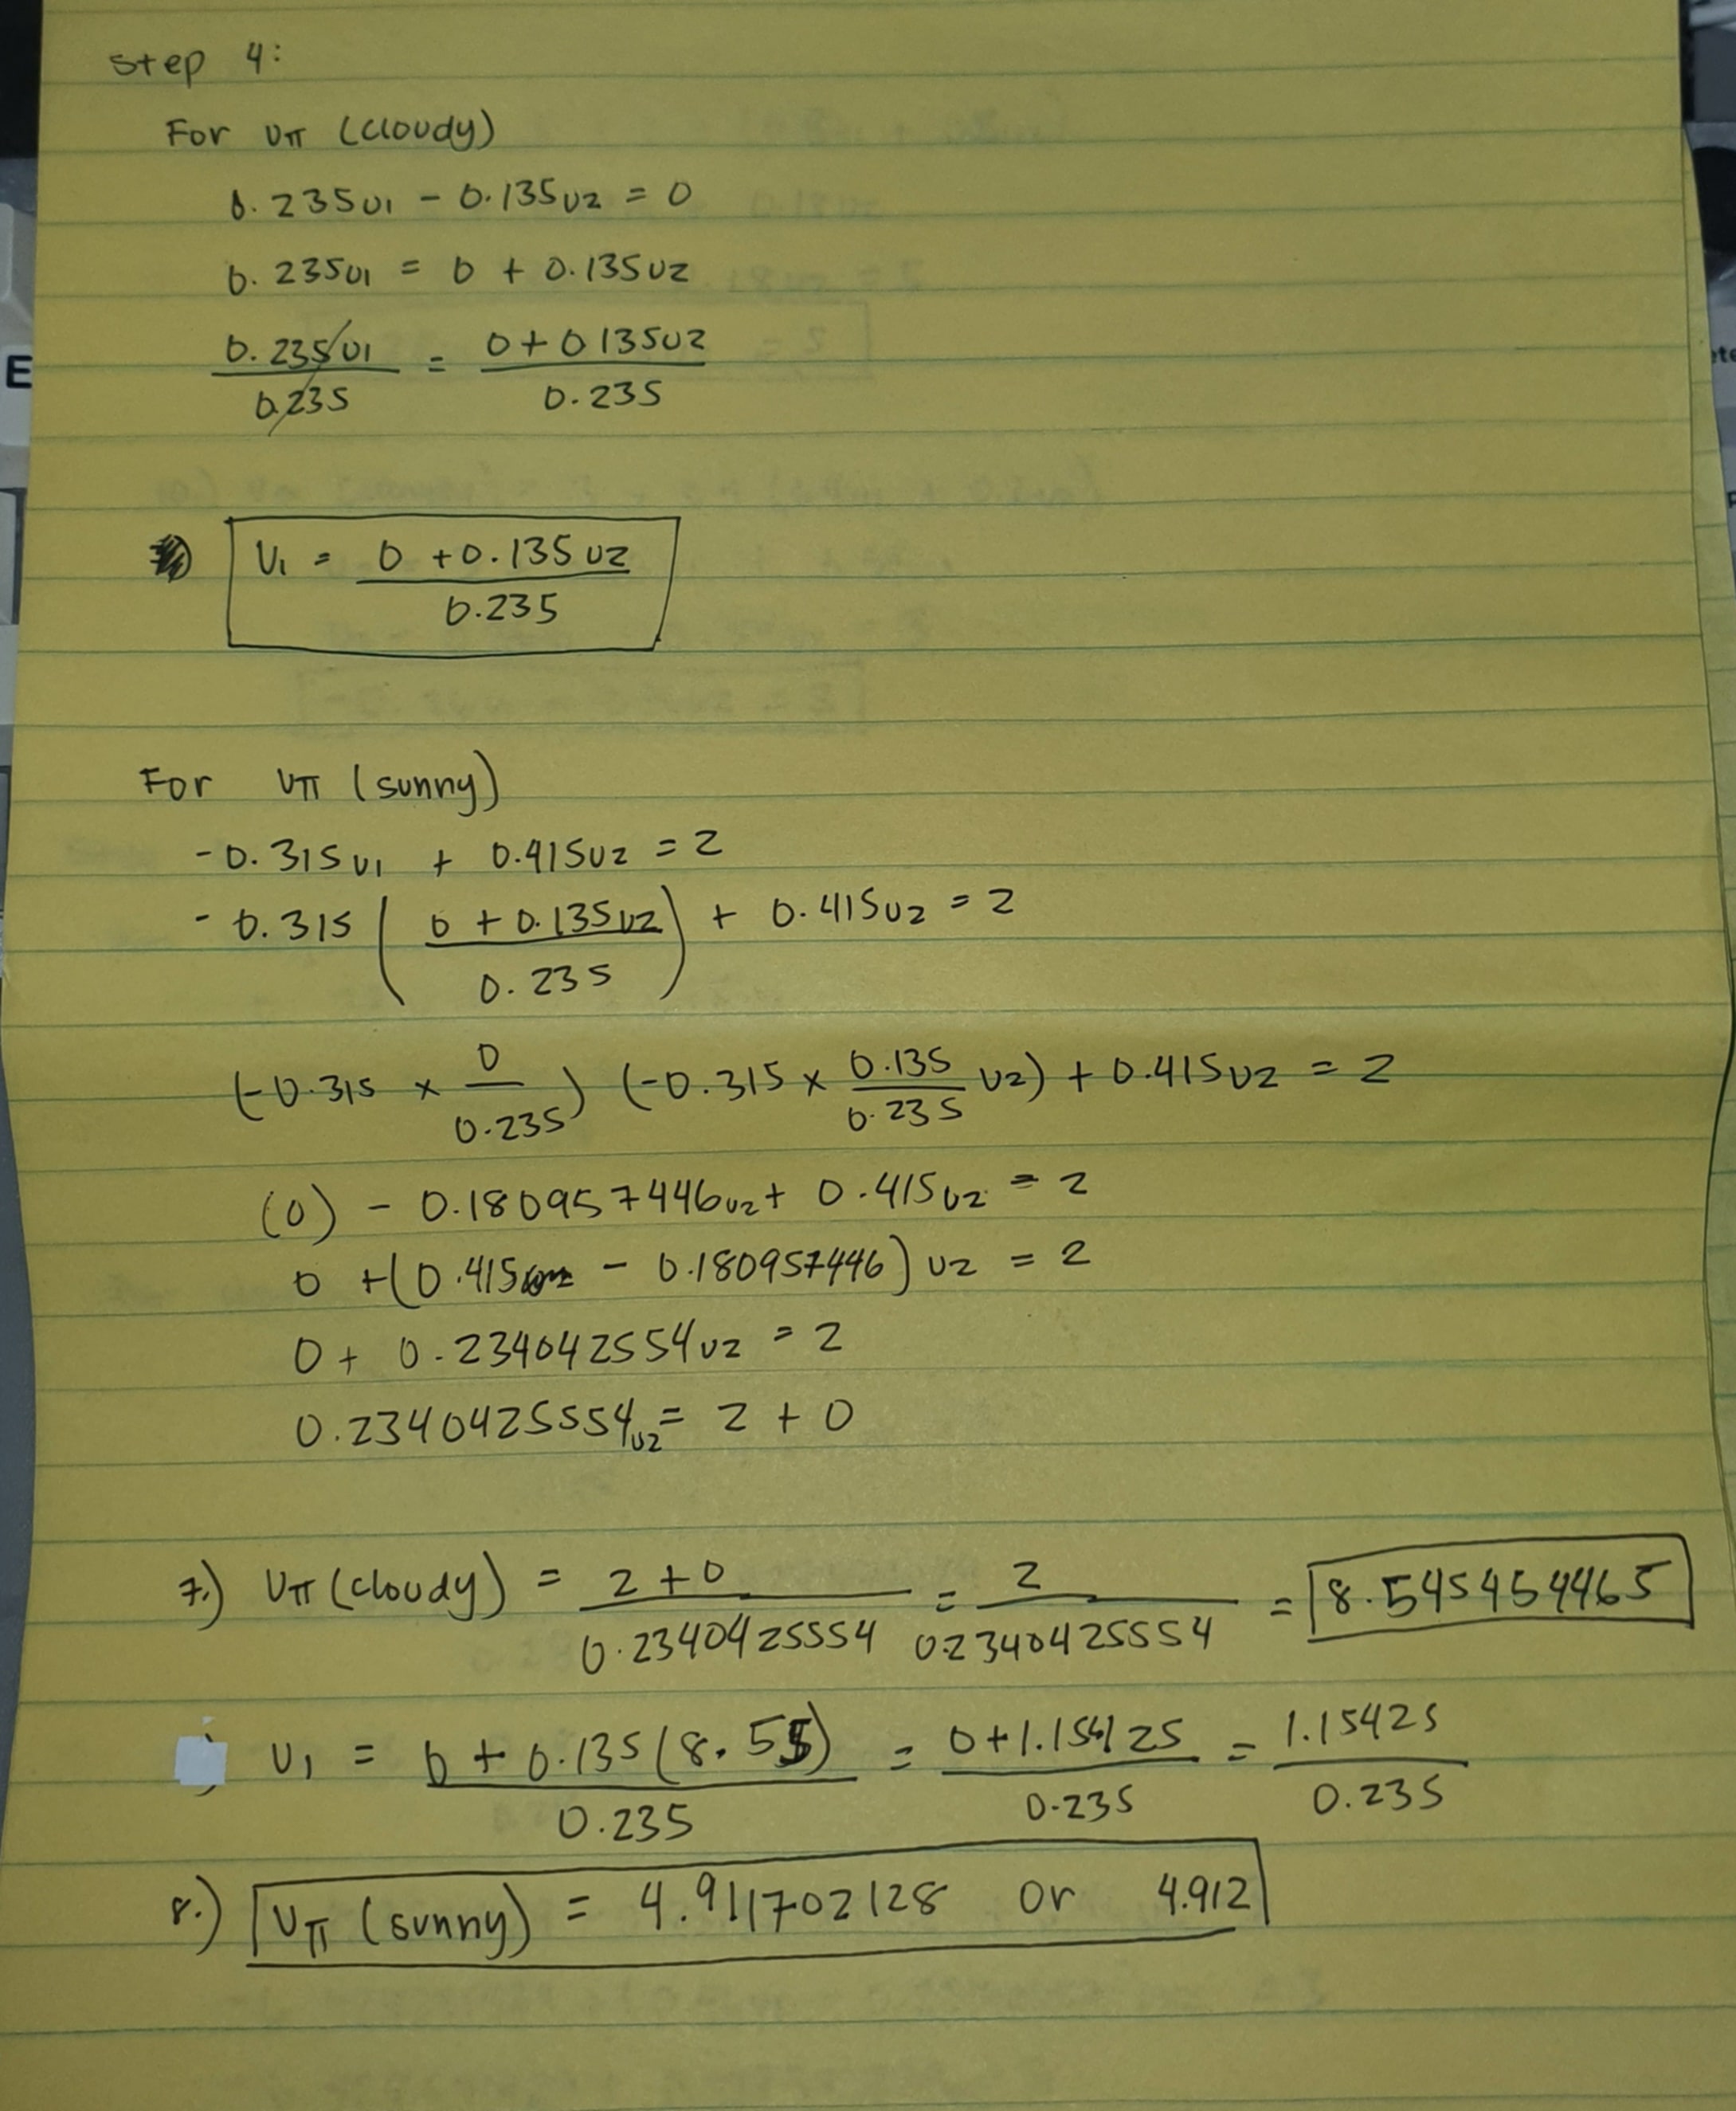 Step 4:
For Uπ (Cloudy)
0.235U1 - 0.135U2 = 0
0.235U1 = 0 + 0.135U2
0.235U1 / 0.235 = 0 + 0 135U2 / 0.235
U1 = 0 + 0.135U2 / 0.235
For Uπ (sunny)
-0.315U1 + 0.415U2 = 2
-0.315 ( 0 + 0.135U2 / 0.235 ) + 0.415U2 = 2
(-0.315 x 0 / 0.235) (-0.315 x 0.135 / 0.235 U2) + 0.415U2 = 2
(0) - 0.180957446U2 + 0.415U2 = 2
0 + (0.415 - 0.180957446) U2 = 2
0 + 0.234042554U2 = 2
0.2340425554U2 = 2 + 0
7.) Uπ (cloudy) = 2 + 0 / 0.2340425554 = 2 / 0.2340425554 = 8.545454465
U1 = 0 + 0.135 (8.55) / 0.235 = 0 + 1.15425 / 0.235 = 1.15425 / 0.235
8.) Uπ (sunny) = 4.911702128 or 4.912
E